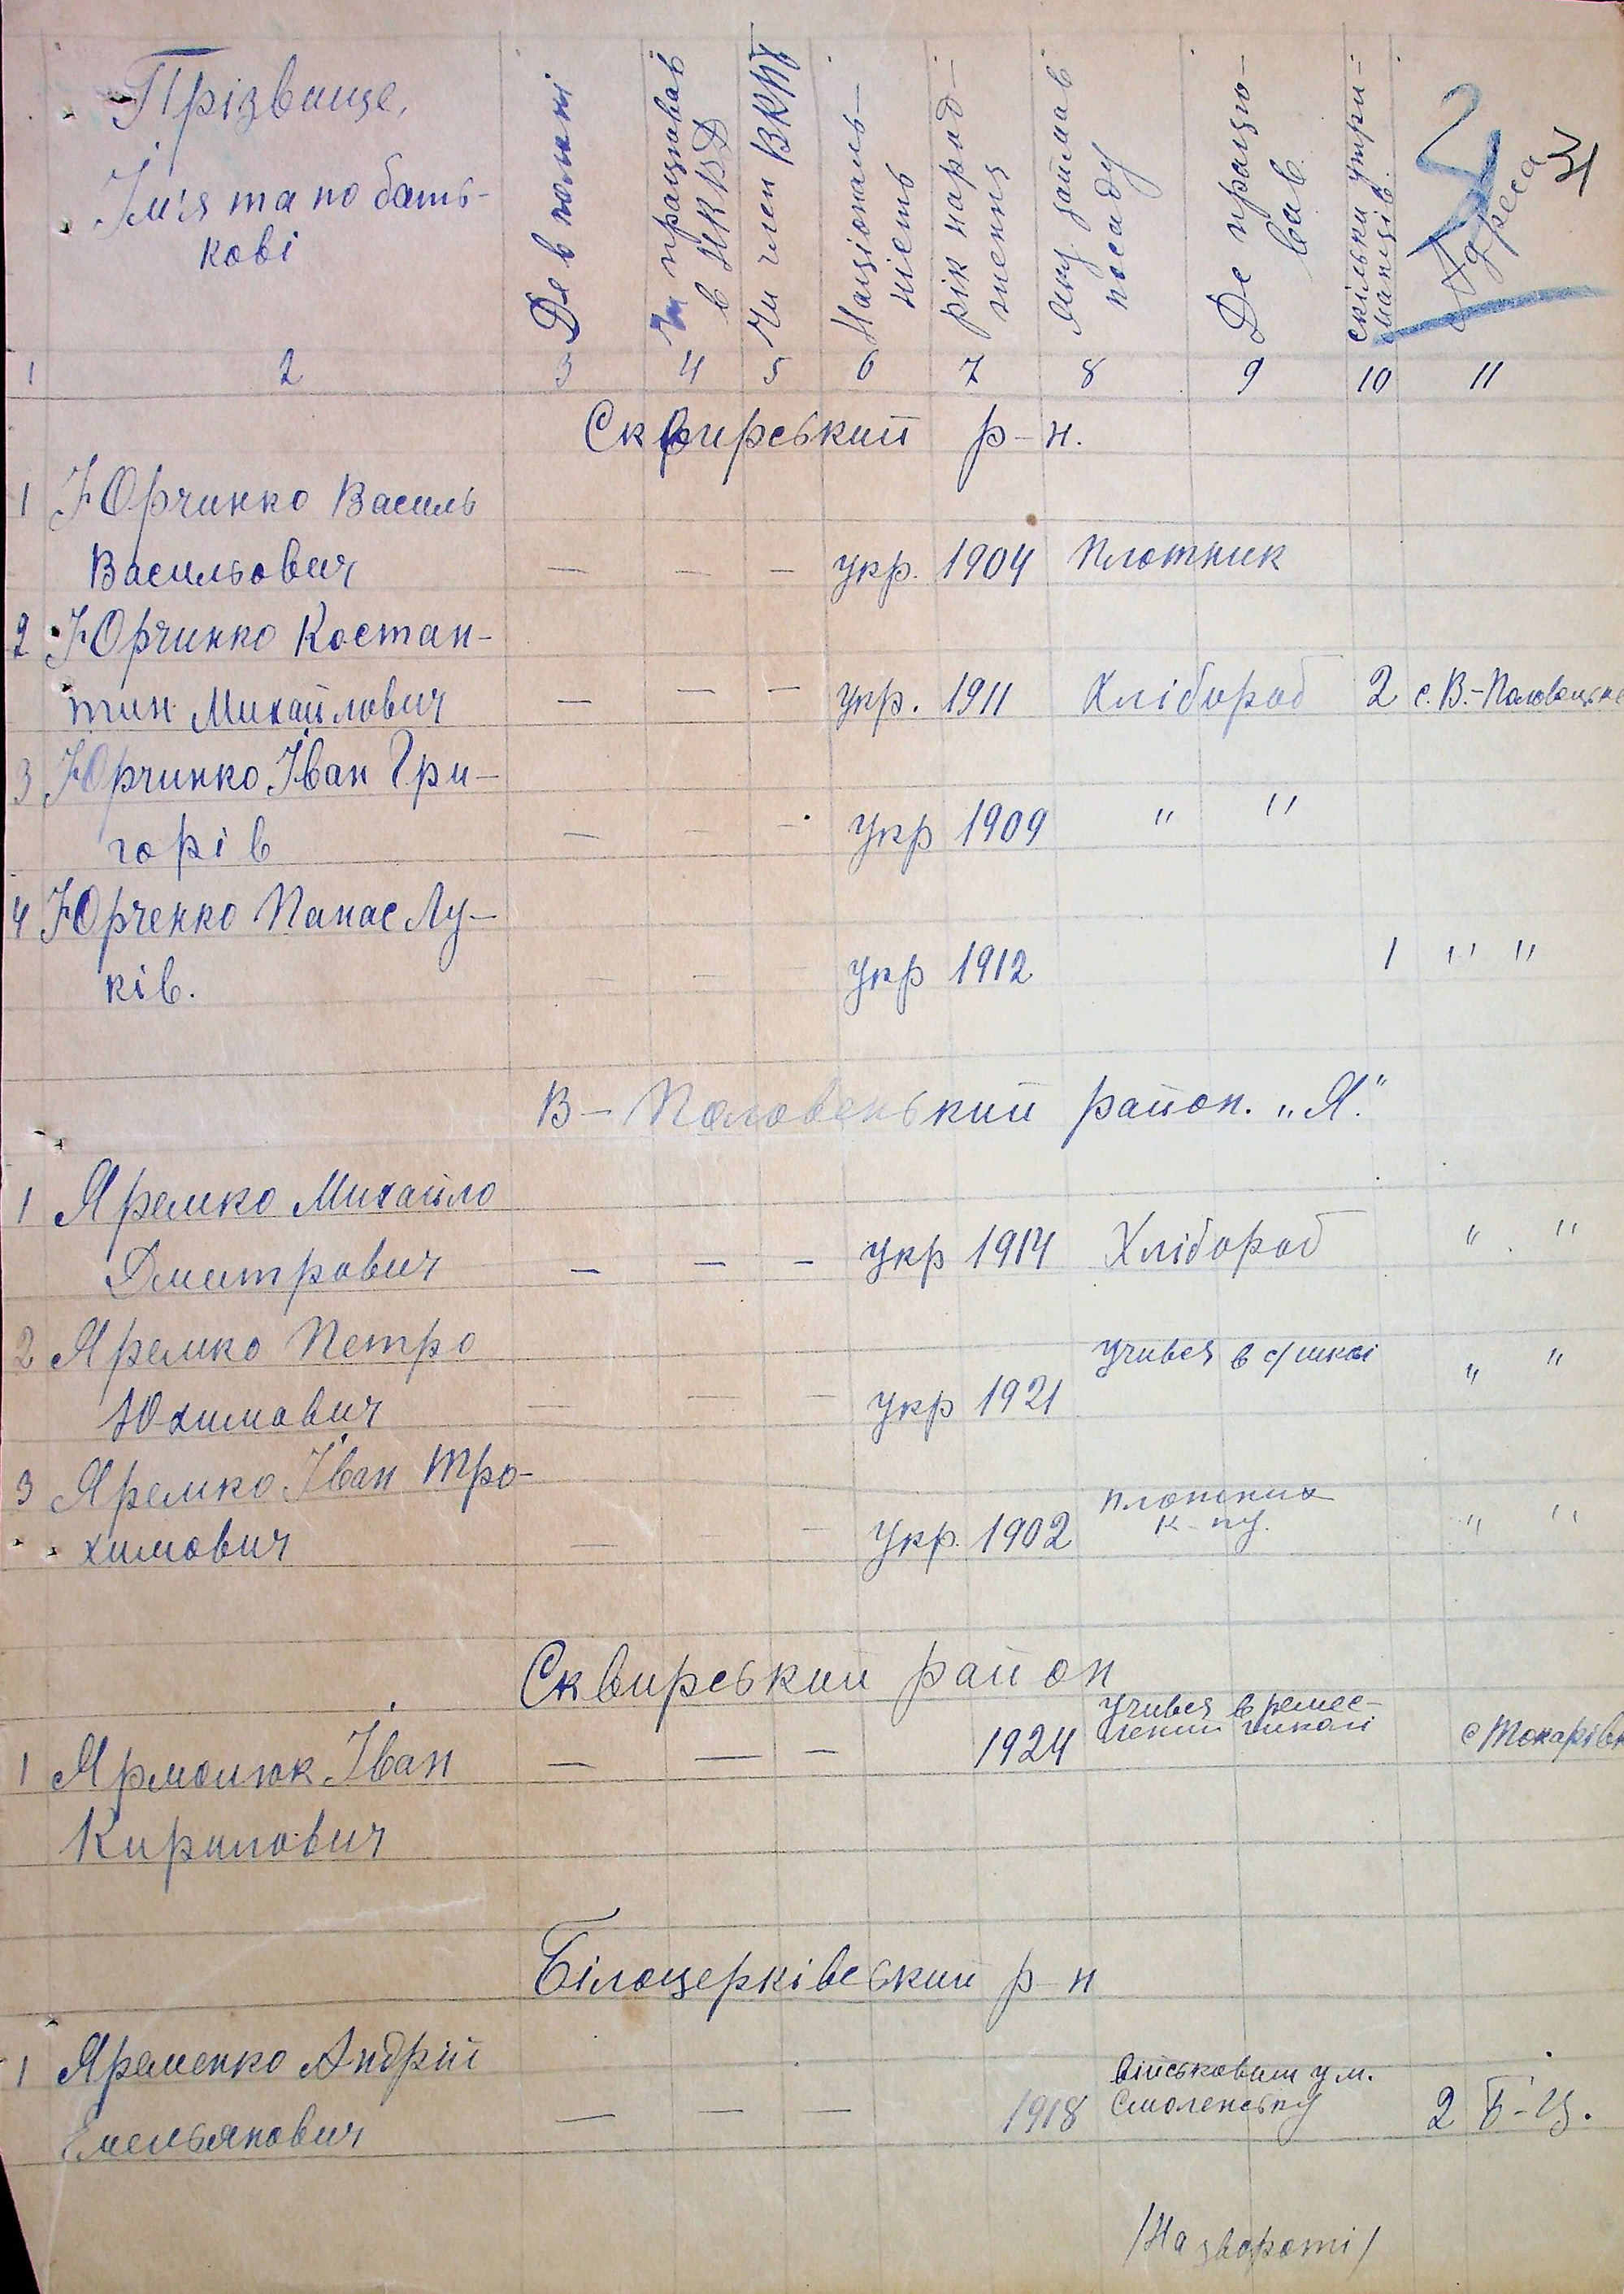 Прізвище,
Ім'я та по бать-
кові
Де в полоні
Чи працював
в НКВД
Чи член ВКПб
Національ-
ність
рік народ-
ження
Яку займав
посаду
Де працю-
вав
скільки утри-
манців.
Адреса
31
1 2 3 4 5 6 7 8 9 10 11
Сквирський р-н.
1 Юрчинко Василь
Васильович — — — укр. 1904 Плотник
2 Юрчинко Костан-
тин Михайлович — — — укр. 1911 Хлібороб 2 с. В.-Половецьке
3 Юрчинко Іван Гри-
горів — — — укр 1909 " "
4 Юрченко Панас Лу-
ків. — — — укр 1912 1 " "
В-Половецький район. „Я."
1 Яремко Михайло
Дмитрович — — — укр 1914 Хлібороб " "
2 Яремко Петро
Юхимович — — — укр 1921 Учився в с/школі " "
3 Яремко Іван Тро-
химович — — — укр. 1902 " "
Сквирський район
1 Ярмолюк Іван — — — 1924 Учився в ремес-
ленній школі с Токарівк
Кирилович
Білоцерківський р-н
1 Яременко Андрій
Емельянович — — — 1918 військовим у м.
Смоленську 2 Б-Ц.
/На звороті/